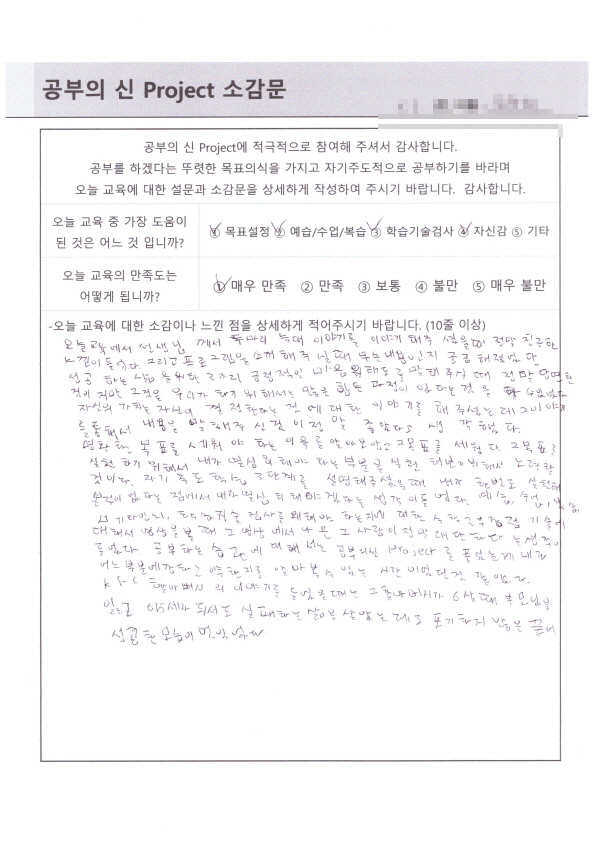 공부의 신 Project 소감문
공부의 신 Project에 적극적으로 참여해 주셔서 감사합니다.
공부를 하겠다는 뚜렷한 목표의식을 가지고 자기주도적으로 공부하기를 바라며
오늘 교육에 대한 설문과 소감문을 상세하게 작성하여 주시기 바랍니다. 감사합니다.
오늘 교육 중 가장 도움이 된 것은 어느 것 입니까?
① 목표설정 ② 예습/수업/복습 ③ 학습기술검사 ④ 자신감 ⑤ 기타
오늘 교육의 만족도는 어떻게 됩니까?
① 매우 만족 ② 만족 ③ 보통 ④ 불만 ⑤ 매우 불만
-오늘 교육에 대한 소감이나 느낀 점을 상세하게 적어주시기 바랍니다. (10줄 이상)
오늘 교육에서 선생님께서 두마리 늑대 이야기를 이야기 해주셨을때 정말 친근한
느낌이 들었다. 그리고 프로그램을 소개 해주실때 무슨 내용인지 궁금해졌었다
성공하는 삶을 위한 긍정적인 말해주실때 정말 당연한
것이지만 그것을 우리가 하기 위해서는 많은 힘든 과정이 있다는 것을 알 수 있었다
자신의 가치는 자신이 결정한다는 것에 대한 이야기를 해주셨는데 그 이야기
를 통해서 내용을 말해주신것이 정말 좋았다고 생각했다.
명확한 목표를 세워야 하는 이유를 알아보았고 그 목표를 세웠다. 그 목표를
실천하기 위해서 내가 열심히 해야하는 부분을 실천 해보기 위해서 노력할
것이다. 자기주도학습 3단계를 설명해주셨을때 내가 한번도 실천해
본적이 없다는 점에서 내가 열심히 해야겠다는 생각이 들었다. 예습, 수업, 복습,
대해서 영상을 볼때 그 영상에서 나온 그 사람이 정말 대단하다는 생각이
들었다. 공부하는 습관에 대해서는 공부의신 Project를 풀었는게 내가
어느부분에 강하고 약한지를 알아볼 수 있는 시간이었던것 같았다.
KFC 할아버지의 이야기를 들었을때는 그 할아버지가 6살때 부모님을
잃고 65세가 되서도 실패하는 삶을 살았는데도 포기하지 않은 끝에
성공한 모습이 멋있었다